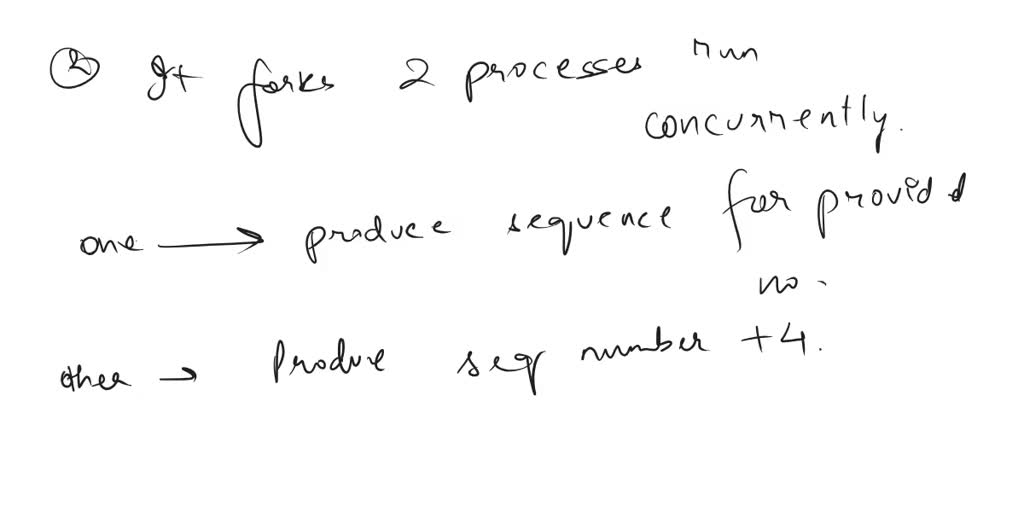 ② It forks 2 processes run
concurrently.
one → produce sequence for provided
no.
other → Produce seq number +4.